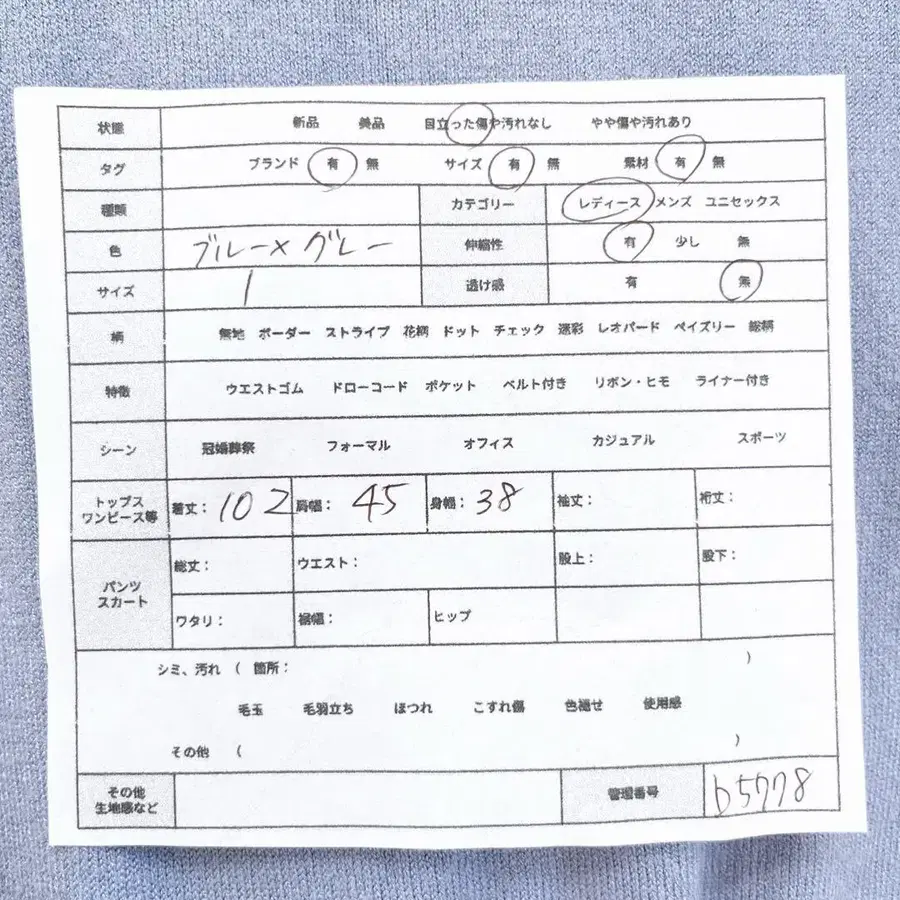 状態 新品 美品 目立った傷や汚れなし やや傷や汚れあり
タグ ブランド 有 無 サイズ 有 無 素材 有 無
種類 カテゴリー レディース メンズ ユニセックス
色 ブルー×グレー 伸縮性 有 少し 無
サイズ 1 透け感 有 無
柄 無地 ボーダー ストライプ 花柄 ドット チェック 迷彩 レオパード ペイズリー 総柄
特徴 ウエストゴム ドローコード ポケット ベルト付き リボン・ヒモ ライナー付き
シーン 冠婚葬祭 フォーマル オフィス カジュアル スポーツ
トップス
ワンピース等 着丈：102 肩幅：45 身幅：38 袖丈： 裄丈：
パンツ
スカート 総丈： ウエスト： 股上： 股下：
ワタリ： 裾幅： ヒップ
シミ、汚れ （ 箇所： ）
毛玉 毛羽立ち ほつれ こすれ傷 色褪せ 使用感
その他 （ ）
その他
生地感など 管理番号 b5778